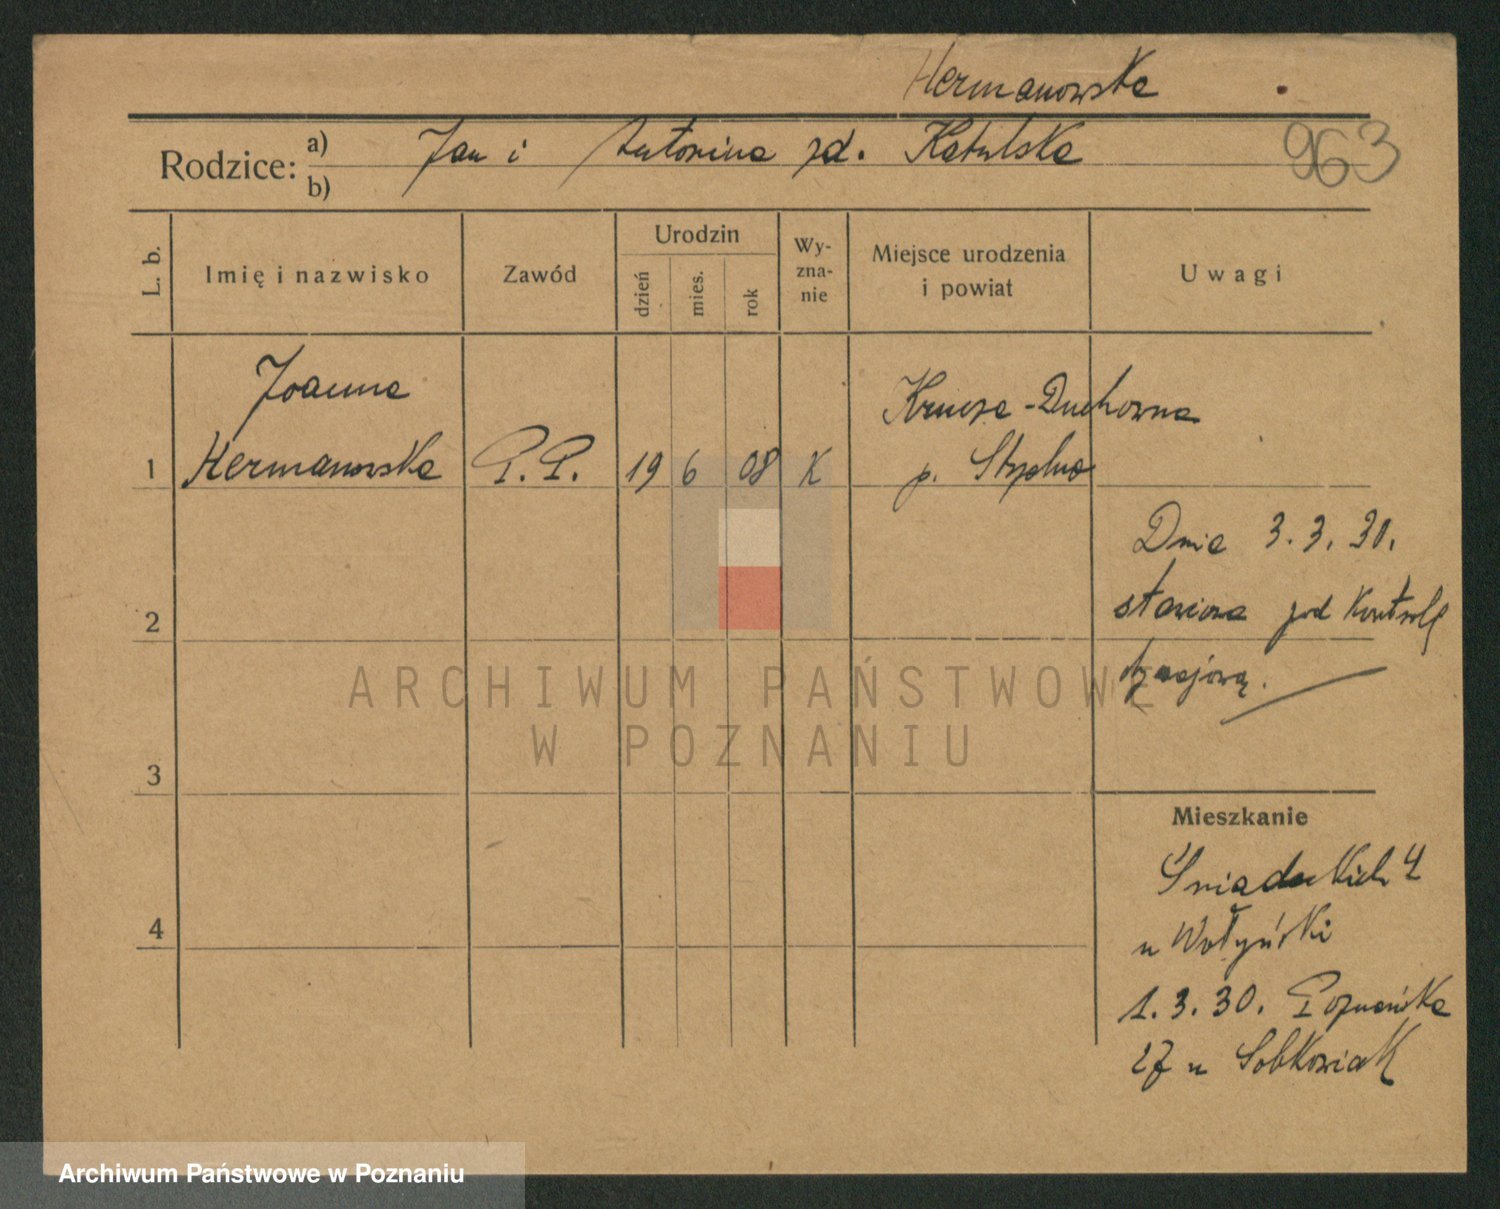 Hermanowska
963
Rodzice: a) Jan i Antonina zd. Katulska
b)
L. b. Imię i nazwisko Zawód Urodzin dzień mies. rok Wy-zna-nie Miejsce urodzenia i powiat Uwagi
Joanna Krusza-Duchowna
1 Hermanowska P.P. 19 6 08 K p. Strzelno
Dnia 3.3.30.
2 stawiona pod kontrolę
ARCHIWUM PAŃSTWOWE
W POZNANIU
3
Mieszkanie
Śniadeckich 4
4 u Wołyński
1.3.30. Poznańska
27 u Sobkowiak
Archiwum Państwowe w Poznaniu